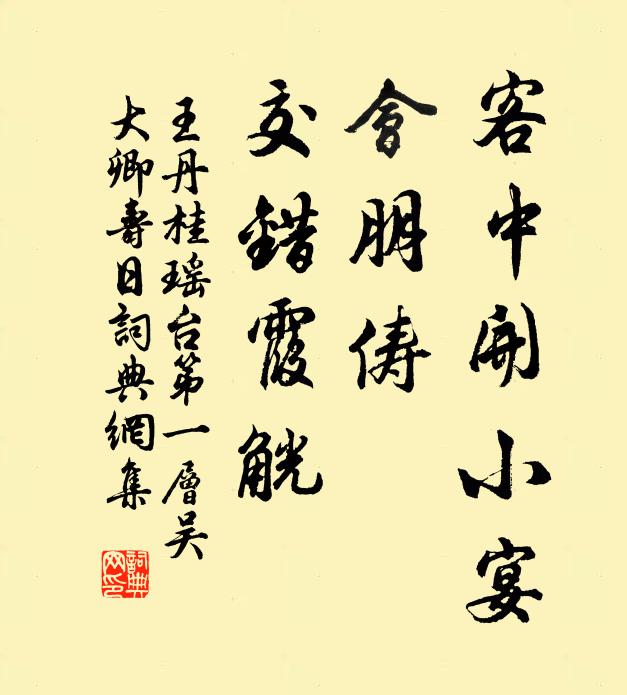 客中開小宴
會朋儔
交錯霞觥
王丹桂瑶台第一層吴
大卿壽日詞典網集
詞典
网印